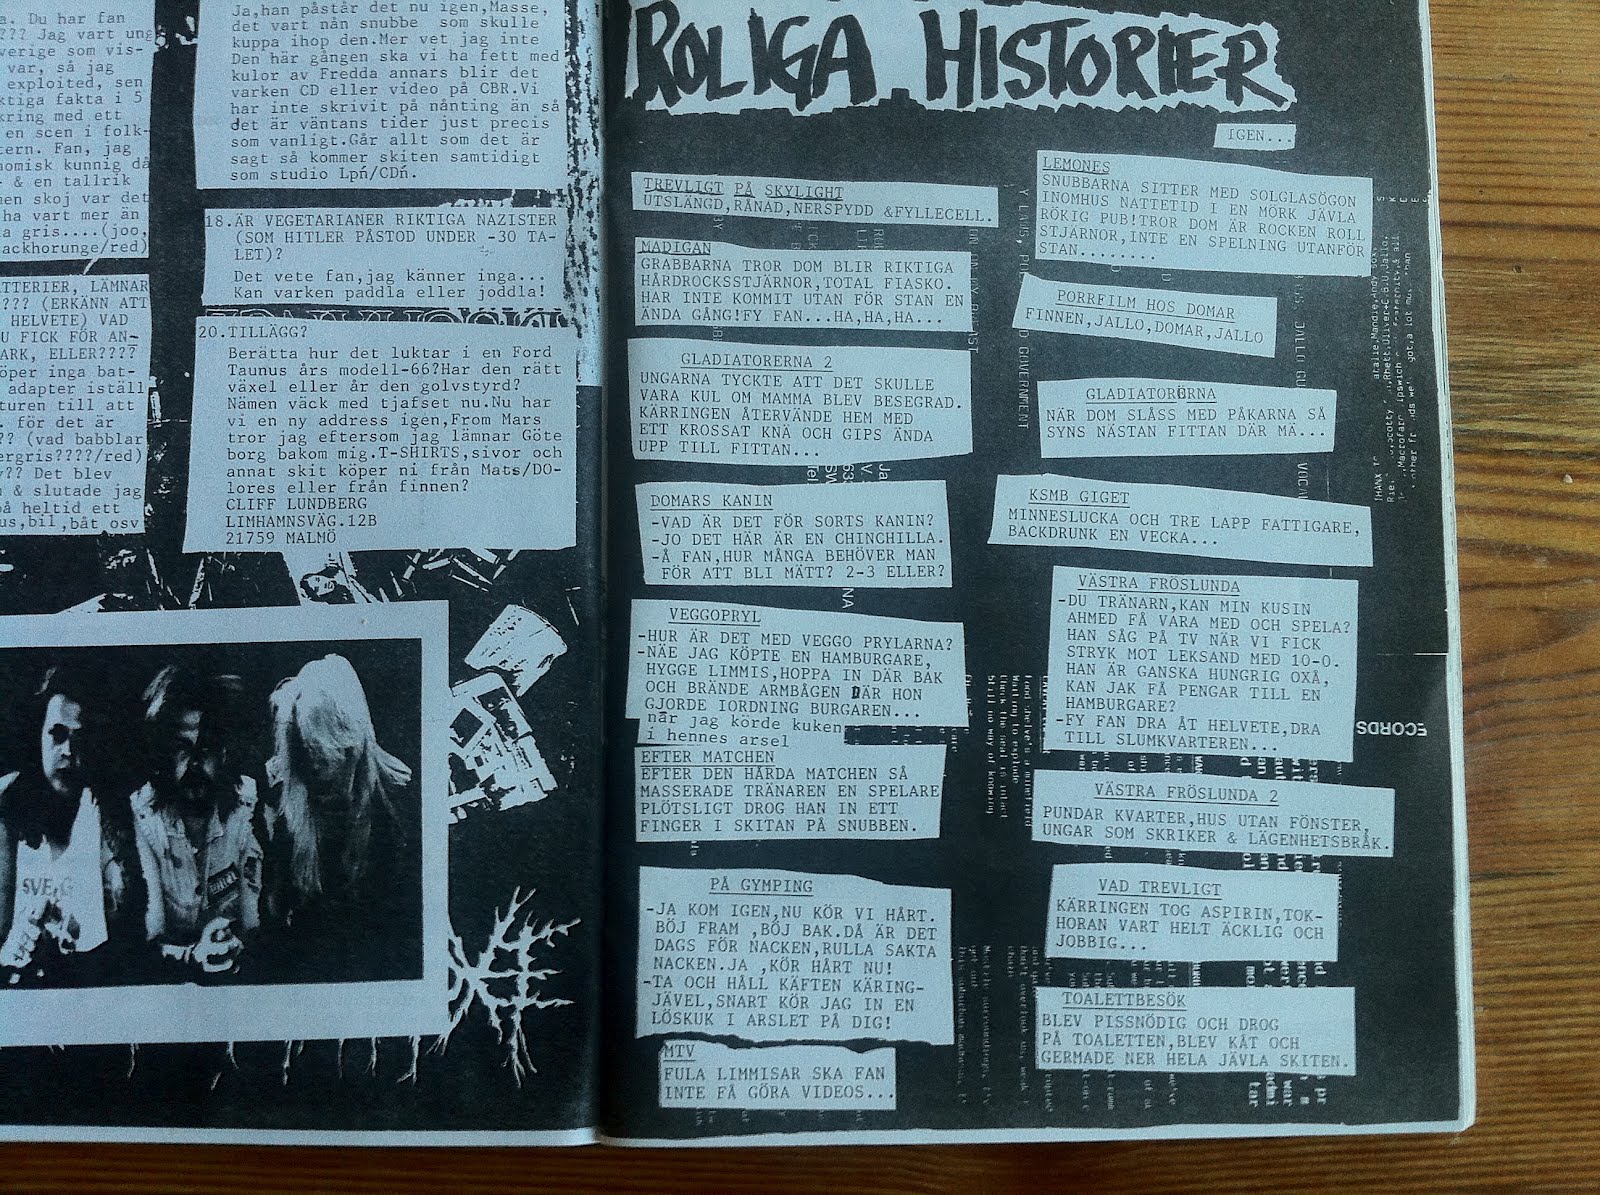 a. Du har fan
??? Jag vart ung
verige som vis-
var, så jag
exploited, sen
ktiga fakta i 5
kring med ett
en scen i folk-
tern. Fan, jag
nomisk kunnig då
& en tallrik
men skoj var det
ha vart mer än
a gris....(joo,
backhorunge/red)
TTERIER, LÄMNAR
???? (ERKÄNN ATT
HELVETE) VAD
U FICK FÖR AN-
ARK, ELLER????
köper inga bat-
adapter iställ
turen till att
. för det är
?? (vad babblar
ergris????/red)
?? Det blev
& slutade jag
på heltid ett
us,bil,båt osv
Ja,han påstår det nu igen,Masse,
det vart nån snubbe som skulle
kuppa ihop den.Mer vet jag inte
Den här gången ska vi ha fett med
kulor av Fredda annars blir det
varken CD eller video på CBR.Vi
har inte skrivit på nånting än så
det är väntans tider just precis
som vanligt.Går allt som det är
sagt så kommer skiten samtidigt
som studio Lpń/CDń.
18.ÄR VEGETARIANER RIKTIGA NAZISTER
(SOM HITLER PÅSTOD UNDER -30 TA-
LET)?
Det vete fan,jag känner inga...
Kan varken paddla eller joddla!
20.TILLÄGG?
Berätta hur det luktar i en Ford
Taunus års modell-66?Har den rätt
växel eller år den golvstyrd?
Nämen väck med tjafset nu.Nu har
vi en ny address igen,From Mars
tror jag eftersom jag lämnar Göte
borg bakom mig.T-SHIRTS,sivor och
annat skit köper ni från Mats/DO-
lores eller från finnen?
CLIFF LUNDBERG
LIMHAMNSVÄG.12B
21759 MALMÖ
ROLIGA HISTORIER
IGEN...
TREVLIGT PÅ SKYLIGHT
UTSLÄNGD,RÅNAD,NERSPYDD &FYLLECELL.
MADIGAN
GRABBARNA TROR DOM BLIR RIKTIGA
HÅRDROCKSSTJÄRNOR,TOTAL FIASKO.
HAR INTE KOMMIT UTAN FÖR STAN EN
ÄNDA GÅNG!FY FAN...HA,HA,HA...
GLADIATORERNA 2
UNGARNA TYCKTE ATT DET SKULLE
VARA KUL OM MAMMA BLEV BESEGRAD.
KÄRRINGEN ÅTERVÄNDE HEM MED
ETT KROSSAT KNÄ OCH GIPS ÄNDA
UPP TILL FITTAN...
DOMARS KANIN
-VAD ÄR DET FÖR SORTS KANIN?
-JO DET HÄR ÄR EN CHINCHILLA.
-Å FAN,HUR MÅNGA BEHÖVER MAN
FÖR ATT BLI MÄTT? 2-3 ELLER?
VEGGOPRYL
-HUR ÄR DET MED VEGGO PRYLARNA?
-NÄE JAG KÖPTE EN HAMBURGARE,
HYGGE LIMMIS,HOPPA IN DÄR BAK
OCH BRÄNDE ARMBÅGEN DÄR HON
GJORDE IORDNING BURGAREN...
när jag körde kuken
i hennes arsel
EFTER MATCHEN
EFTER DEN HÅRDA MATCHEN SÅ
MASSERADE TRÄNAREN EN SPELARE
PLÖTSLIGT DROG HAN IN ETT
FINGER I SKITAN PÅ SNUBBEN.
PÅ GYMPING
-JA KOM IGEN,NU KÖR VI HÅRT.
BÖJ FRAM ,BÖJ BAK.DÅ ÄR DET
DAGS FÖR NACKEN,RULLA SAKTA
NACKEN.JA ,KÖR HÅRT NU!
-TA OCH HÅLL KÄFTEN KÄRING-
JÄVEL,SNART KÖR JAG IN EN
LÖSKUK I ARSLET PÅ DIG!
MTV
FULA LIMMISAR SKA FAN
INTE FÅ GÖRA VIDEOS...
LEMONES
SNUBBARNA SITTER MED SOLGLASÖGON
INOMHUS NATTETID I EN MÖRK JÄVLA
RÖKIG PUB!TROR DOM ÄR ROCKEN ROLL
STJÄRNOR,INTE EN SPELNING UTANFÖR
STAN........
PORRFILM HOS DOMAR
FINNEN,JALLO,DOMAR,JALLO
GLADIATORÖRNA
NÄR DOM SLÅSS MED PÅKARNA SÅ
SYNS NÄSTAN FITTAN DÄR MÄ...
KSMB GIGET
MINNESLUCKA OCH TRE LAPP FATTIGARE,
BACKDRUNK EN VECKA...
VÄSTRA FRÖSLUNDA
-DU TRÄNARN,KAN MIN KUSIN
AHMED FÅ VARA MED OCH SPELA?
HAN SÅG PÅ TV NÄR VI FICK
STRYK MOT LEKSAND MED 10-0.
HAN ÄR GANSKA HUNGRIG OXÅ,
KAN JAK FÅ PENGAR TILL EN
HAMBURGARE?
-FY FAN DRA ÅT HELVETE,DRA
TILL SLUMKVARTEREN...
VÄSTRA FRÖSLUNDA 2
PUNDAR KVARTER,HUS UTAN FÖNSTER,
UNGAR SOM SKRIKER & LÄGENHETSBRÅK.
VAD TREVLIGT
KÄRRINGEN TOG ASPIRIN,TOK-
HORAN VART HELT ÄCKLIG OCH
JOBBIG...
TOALETTBESÖK
BLEV PISSNÖDIG OCH DROG
PÅ TOALETTEN,BLEV KÅT OCH
GERMADE NER HELA JÄVLA SKITEN.
ECORDS